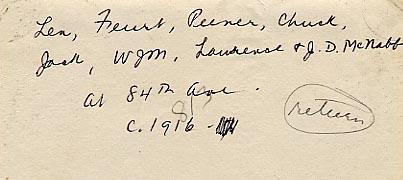 Len, Feurt, Peener, Chuck,
Jack, WJM, Laurence & J. D. McNabb
at 84th Ave.
8/3
c. 1916 -
return